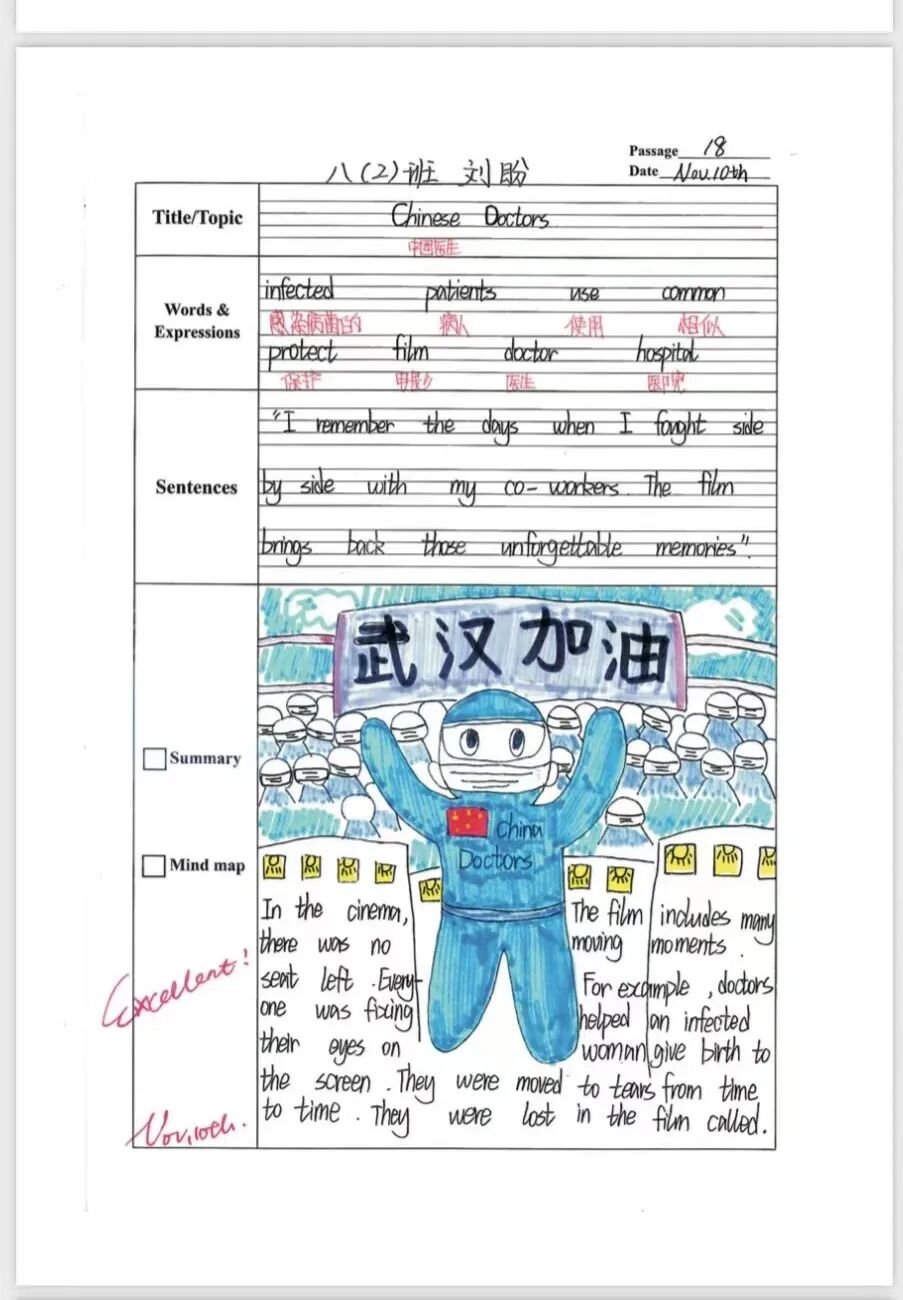 Passage 18
八(2)班 刘盼
Date Nov.10th
Title/Topic
Chinese Doctors
中国医生
Words &
Expressions
infected patients use common
感染病菌的 病人 使用 相似
protect film doctor hospital
保护 电影 医生 医院
Sentences
"I remember the days when I fought side
by side with my co-workers. The film
brings back those unforgettable memories".
武汉加油
Summary
China
Doctors
Mind map
In the cinema,
there was no
seat left. Every-
one was fixing
their eyes on
The film includes many
moving moments.
For example, doctors
helped an infected
woman give birth to
the screen. They were moved to tears from time
to time. They were lost in the film called.
Excellent!
Nov,10th.